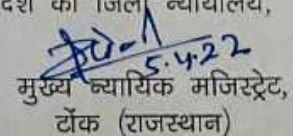 देश का जिला न्यायालय,
5.4.22
मुख्य न्यायिक मजिस्ट्रेट,
टोंक (राजस्थान)